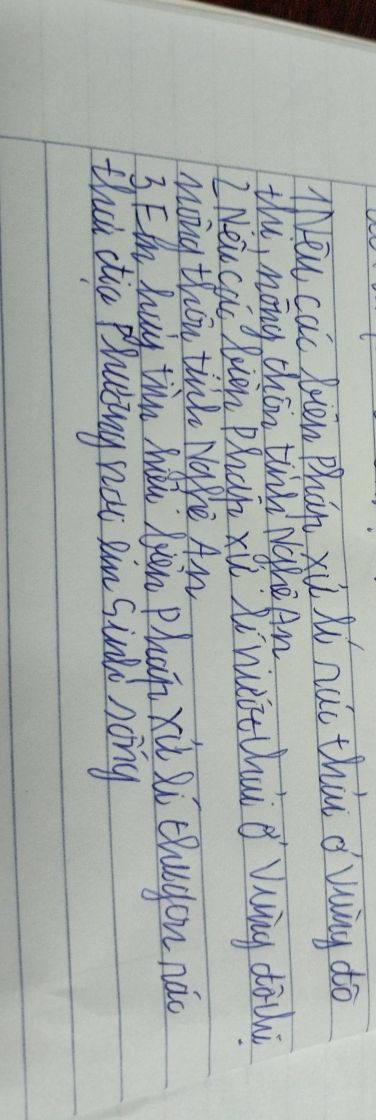 1, Nêu các biện pháp xử lí rác thải ở vùng đô
thị, nông thôn tỉnh Nghệ An
2, Nêu các biện pháp xử lí nước thải ở vùng đô thị.
nông thôn tỉnh Nghệ An
3, Em hãy tìm hiểu biện pháp xử lí rác
thải địa phương nơi em sinh sống